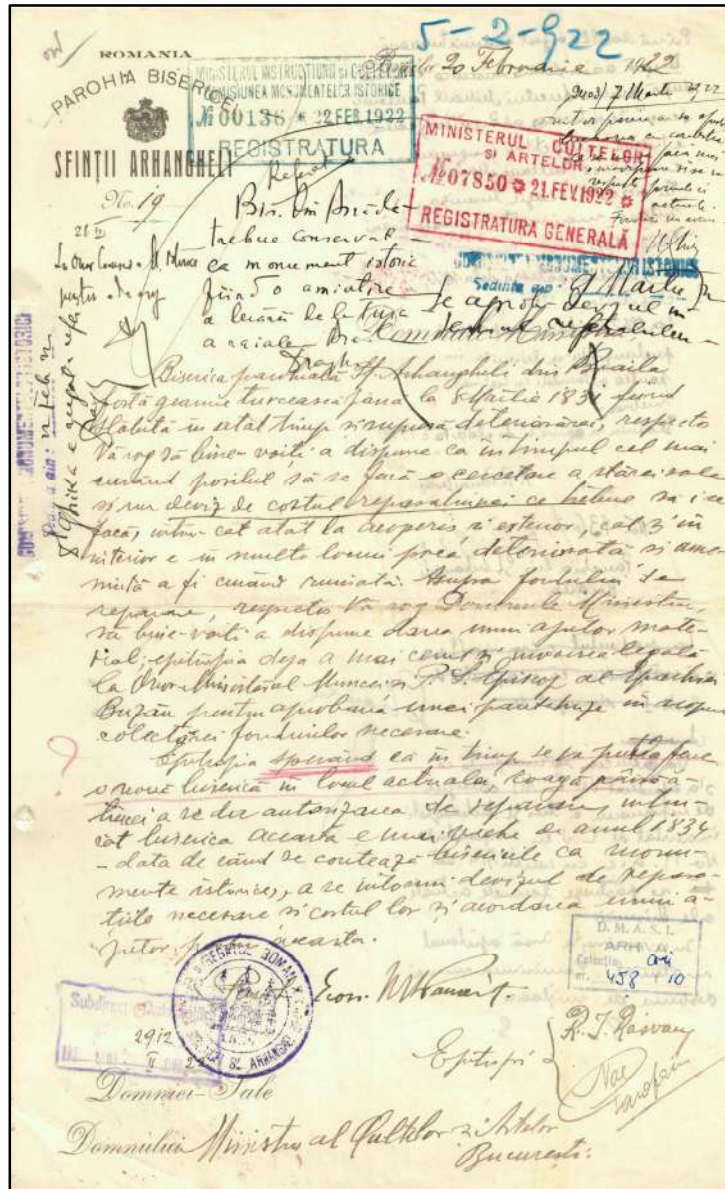 5-2-922
ROMANIA
PAROHIA BISERICEI
SFINȚII ARHANGHELI
No. 19
20 Februarie 1922
MINISTERUL INSTRUCȚIUNII și CULTELOR
COMISIUNEA MONUMENTELOR ISTORICE
№ 00136 * 22 FEB. 1922
REGISTRATURA
MINISTERUL CULTELOR
SI ARTELOR
№ 07850 * 21.FEV.1922 *
REGISTRATURA GENERALĂ
7 Martie 1922
Referat
Bis. din Brăila
trebue conservat
ca monument istoric
fiind o amintire
a raialei
COMISIUNEA MONUMENTELOR ISTORICE
Sedința din Martie
Se aprobă devizul in
sensul referatului
Domnule Ministru
Biserica parohială Sf. Arhangheli din Braila
fostă geamie turcească pana la 8 Martie 1834 fiind
slabită in atât timp si supusă deteriorărei, respectos
Vă rog să bine-voiți a dispune ca in timpul cel mai
curând posibil să se facă o cercetare a stărei sale
si un deviz de costul reparatiunei ce trebue sa i se
facă, intru cât atât la acoperis si exterior, cat și in
interior e in multe locuri prea deteriorată si ame-
nintă a fi curând ruinată. Asupra fondului de
reparare, respectos Vă rog Domnule Ministru,
să bine-voiți a dispune darea unui ajutor mate-
rial; epitropia deja a mai cerut și invoirea legală
la Onor. Ministerul Muncei si P. S. Episcop al Eparhiei
Buzău pentru aprobarea unei pantahuze in scopul
colectărei fondurilor necesare.
Epitropia sperând ca in timp se va putea face
o nouă biserică in locul actualei, roagă
a se da autorizarea de reparare, intru-
cât biserica aceasta e mai veche de anul 1834
- data de când se contează bisericile ca monu-
mente istorice, a se intocmi devizul de repara-
tiile necesare si costul lor și acordarea unui a-
jutor pentru aceasta.
D.M.A.S.I.
ARHIVA
Colecția
nr. 458 10
Epitropi
R. I. Răsvan
2912
II 22
Domniei-Sale
Domnului Ministru al Cultelor si Artelor
Bucuresti.